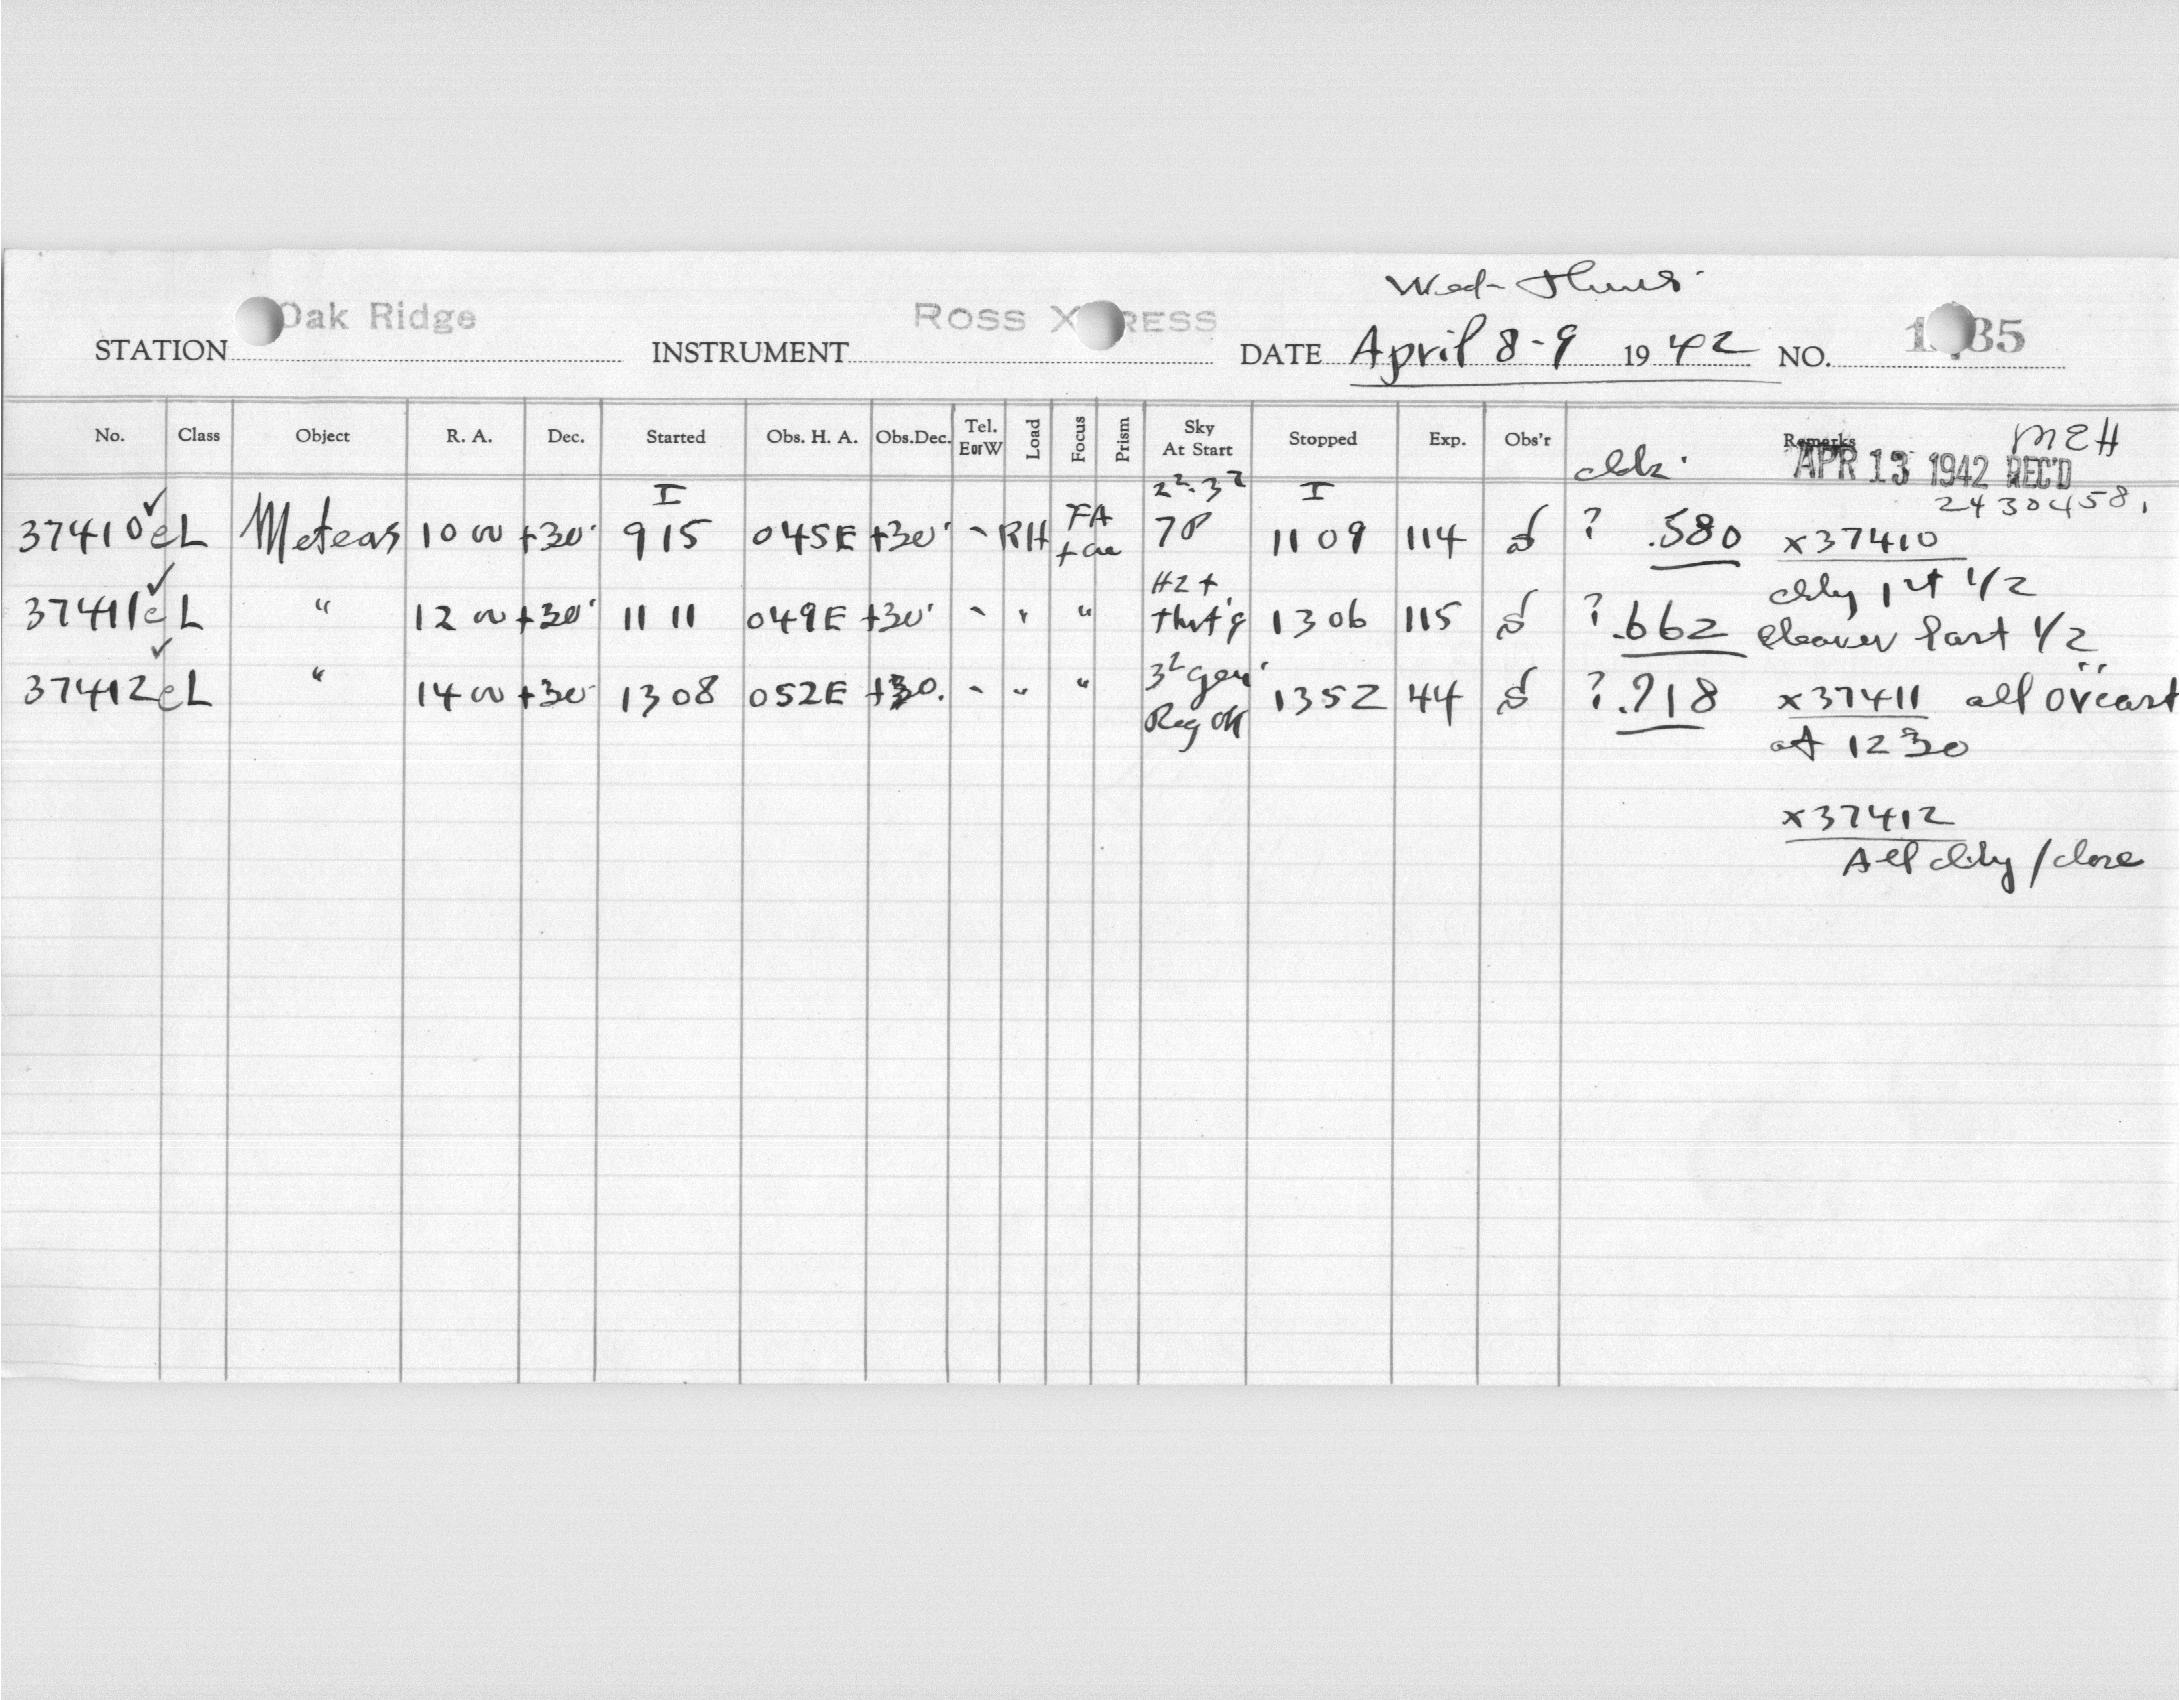 Wed- Thurs.
STATION Oak Ridge INSTRUMENT ROSS X RESS DATE April 8-9 1942 NO. 1 35
No. Class Object R. A. Dec. Started Obs. H. A. Obs.Dec. Tel. EorW Load Focus Prism Sky At Start Stopped Exp. Obs'r Remarks MEH
APR 13 1942 REC'D
I 2²-3² I 2430458,
37410 ✓ eL Meteors 10 00 +30 915 045E +30 - RH FA 7P 11 09 114 ? .580 x37410
H2 + cldy 1st 1/2
37411 ✓ eL " 12 00 +30 11 11 049E +30 - " " 1306 115 ? .662 clearer last 1/2
37412 ✓ eL " 14 00 +30 1308 052E +30 - " " 3² Gen 1352 44 ? .718 x37411 all ovcast
Reg OK at 12 30
x37412
All cldy / close